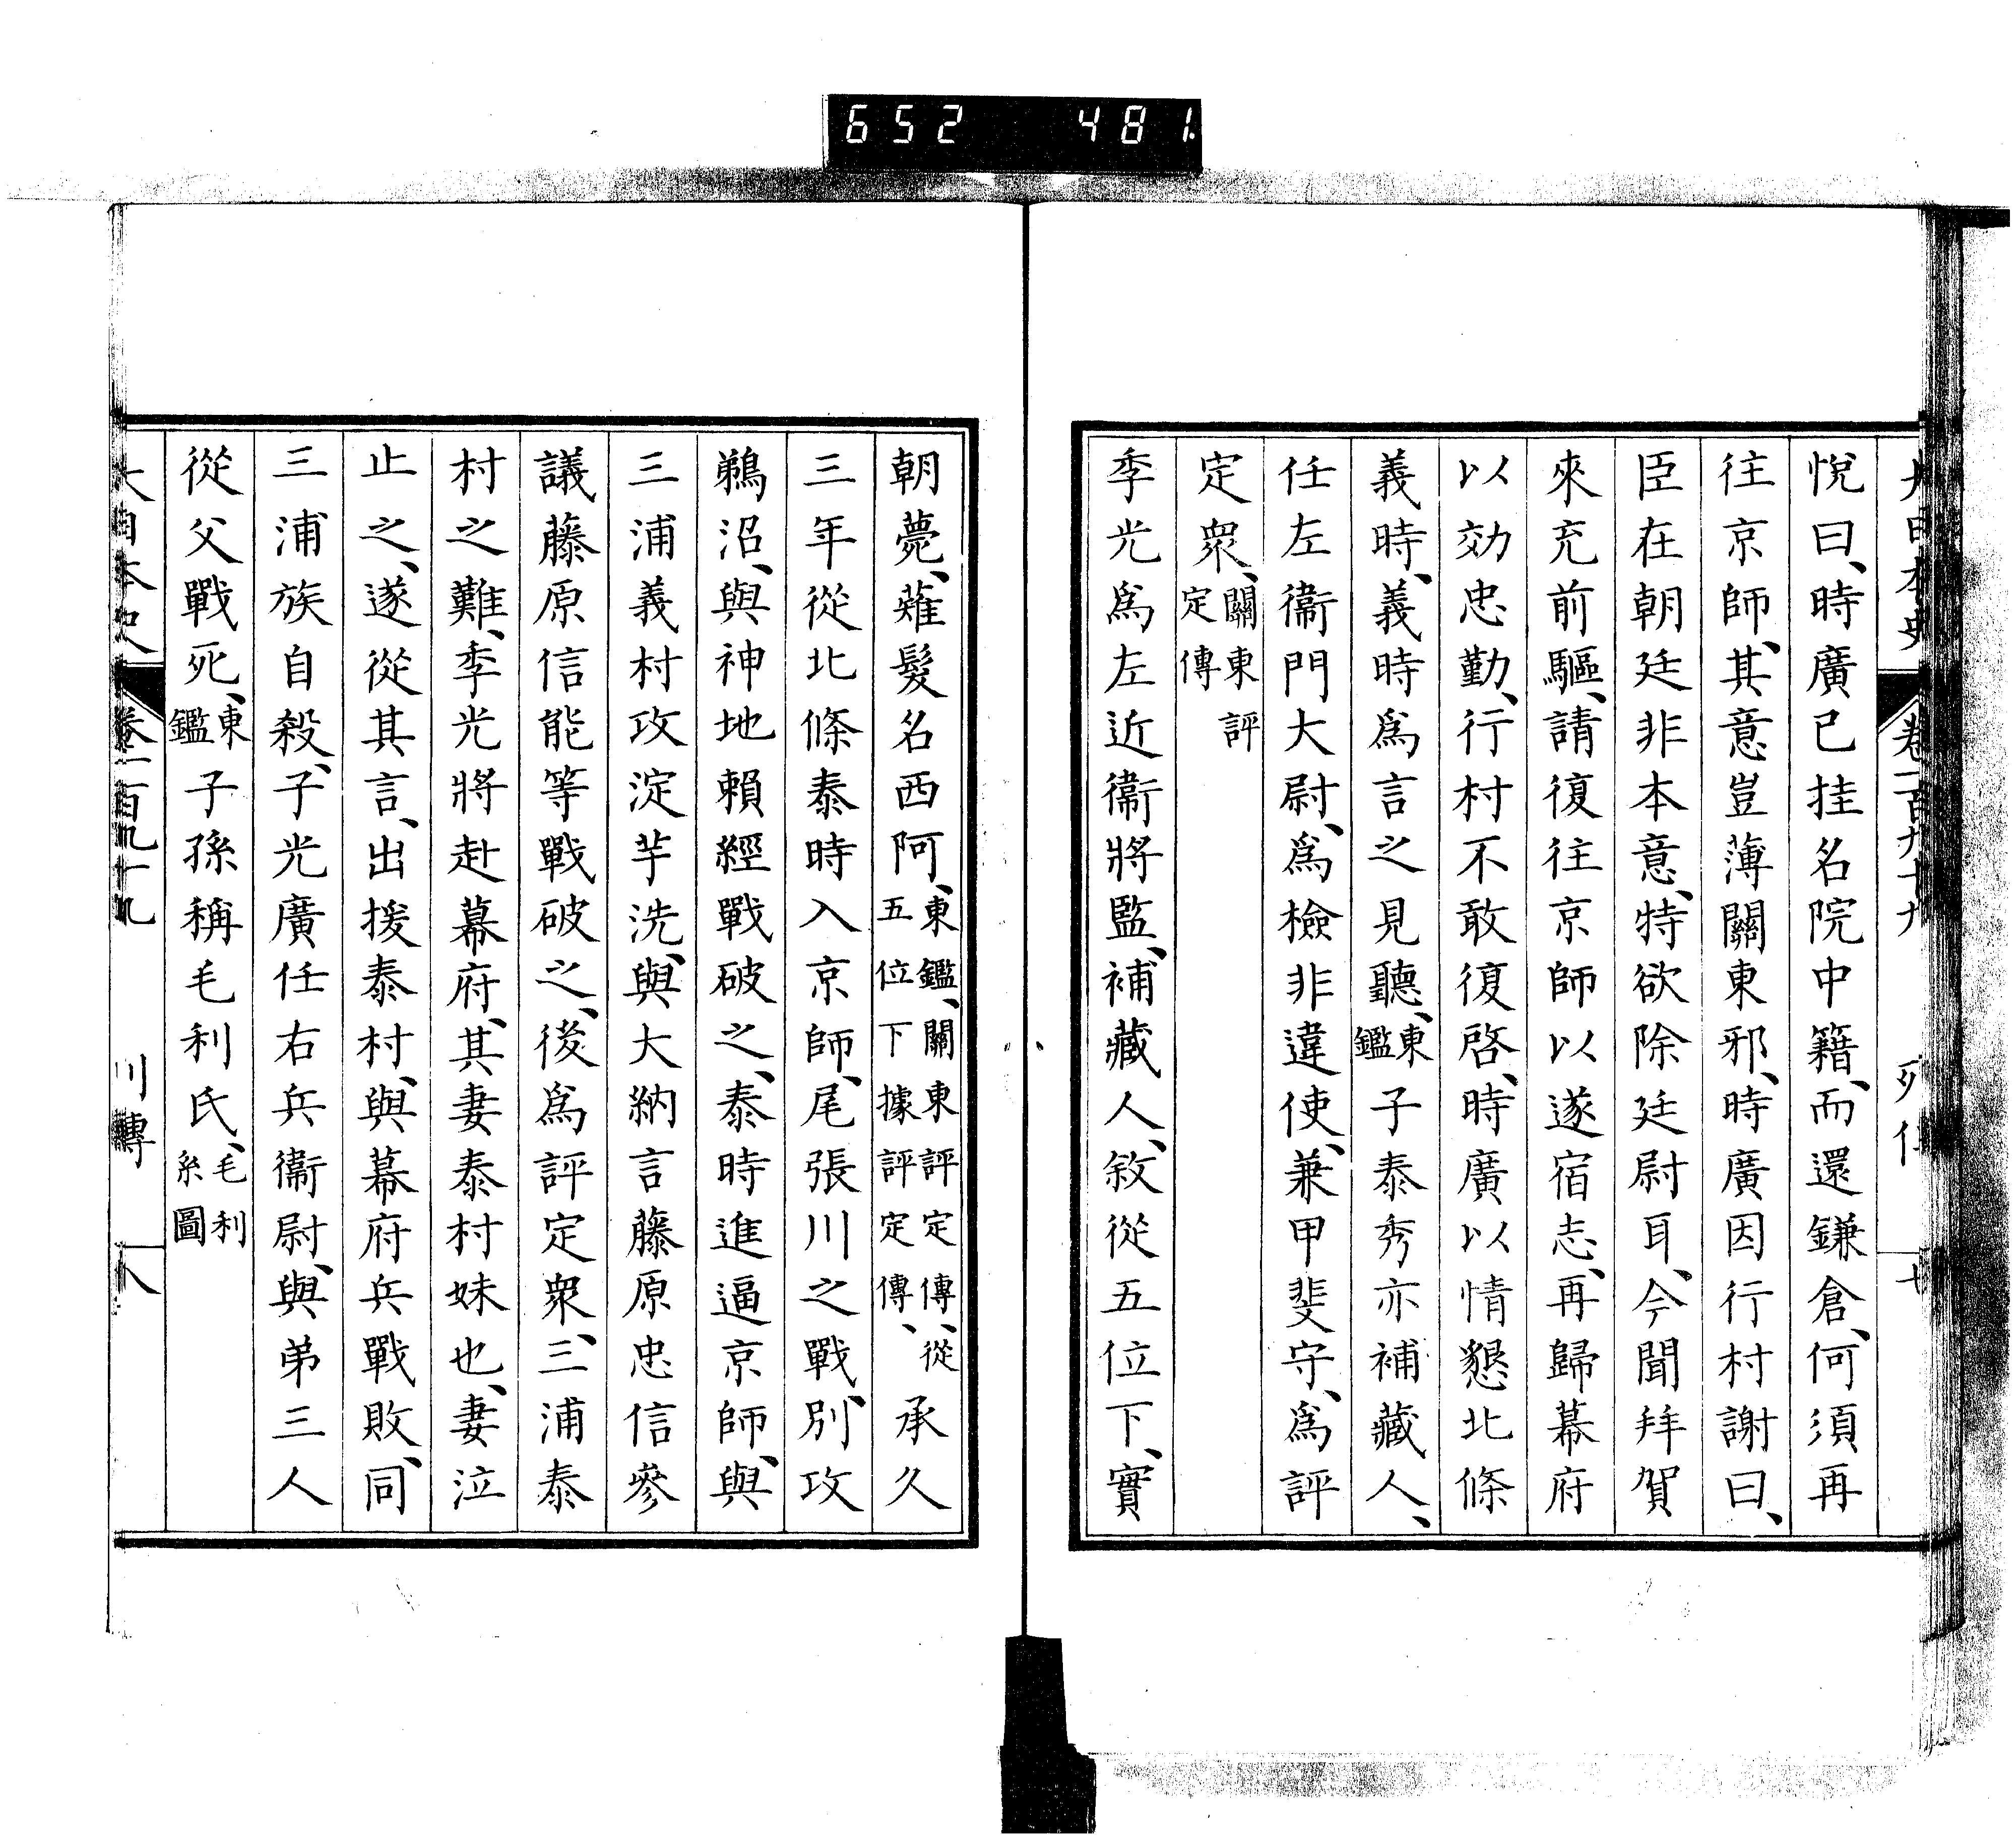 652 481.
大日本史 卷一百九十九 列傳 七
悅曰、時廣已挂名院中籍、而還鎌倉、何須再
往京師、其意豈薄關東邪、時廣因行村謝曰、
臣在朝廷非本意、特欲除廷尉耳、今聞拜賀
來充前驅、請復往京師以遂宿志、再歸幕府
以効忠勤、行村不敢復啓、時廣以情懇北條
義時、義時爲言之見聽、東鑑子泰秀亦補藏人、
任左衞門大尉、爲檢非違使、兼甲斐守、爲評
定衆、關東評定傳
季光爲左近衞將監、補藏人、敘從五位下、實
朝薨、薙髮名西阿、東鑑、關東評定傳、從五位下據評定傳、承久
三年從北條泰時入京師、尾張川之戰、別攻
鵜沼、與神地賴經戰破之、泰時進逼京師、與
三浦義村攻淀芋洗、與大納言藤原忠信參
議藤原信能等戰破之、後爲評定衆、三浦泰
村之難、季光將赴幕府、其妻泰村妹也、妻泣
止之、遂從其言、出援泰村、與幕府兵戰敗、同
三浦族自殺、子光廣任右兵衞尉、與弟三人
從父戰死、東鑑子孫稱毛利氏、毛利系圖
大日本史 卷一百九十九 列傳 八